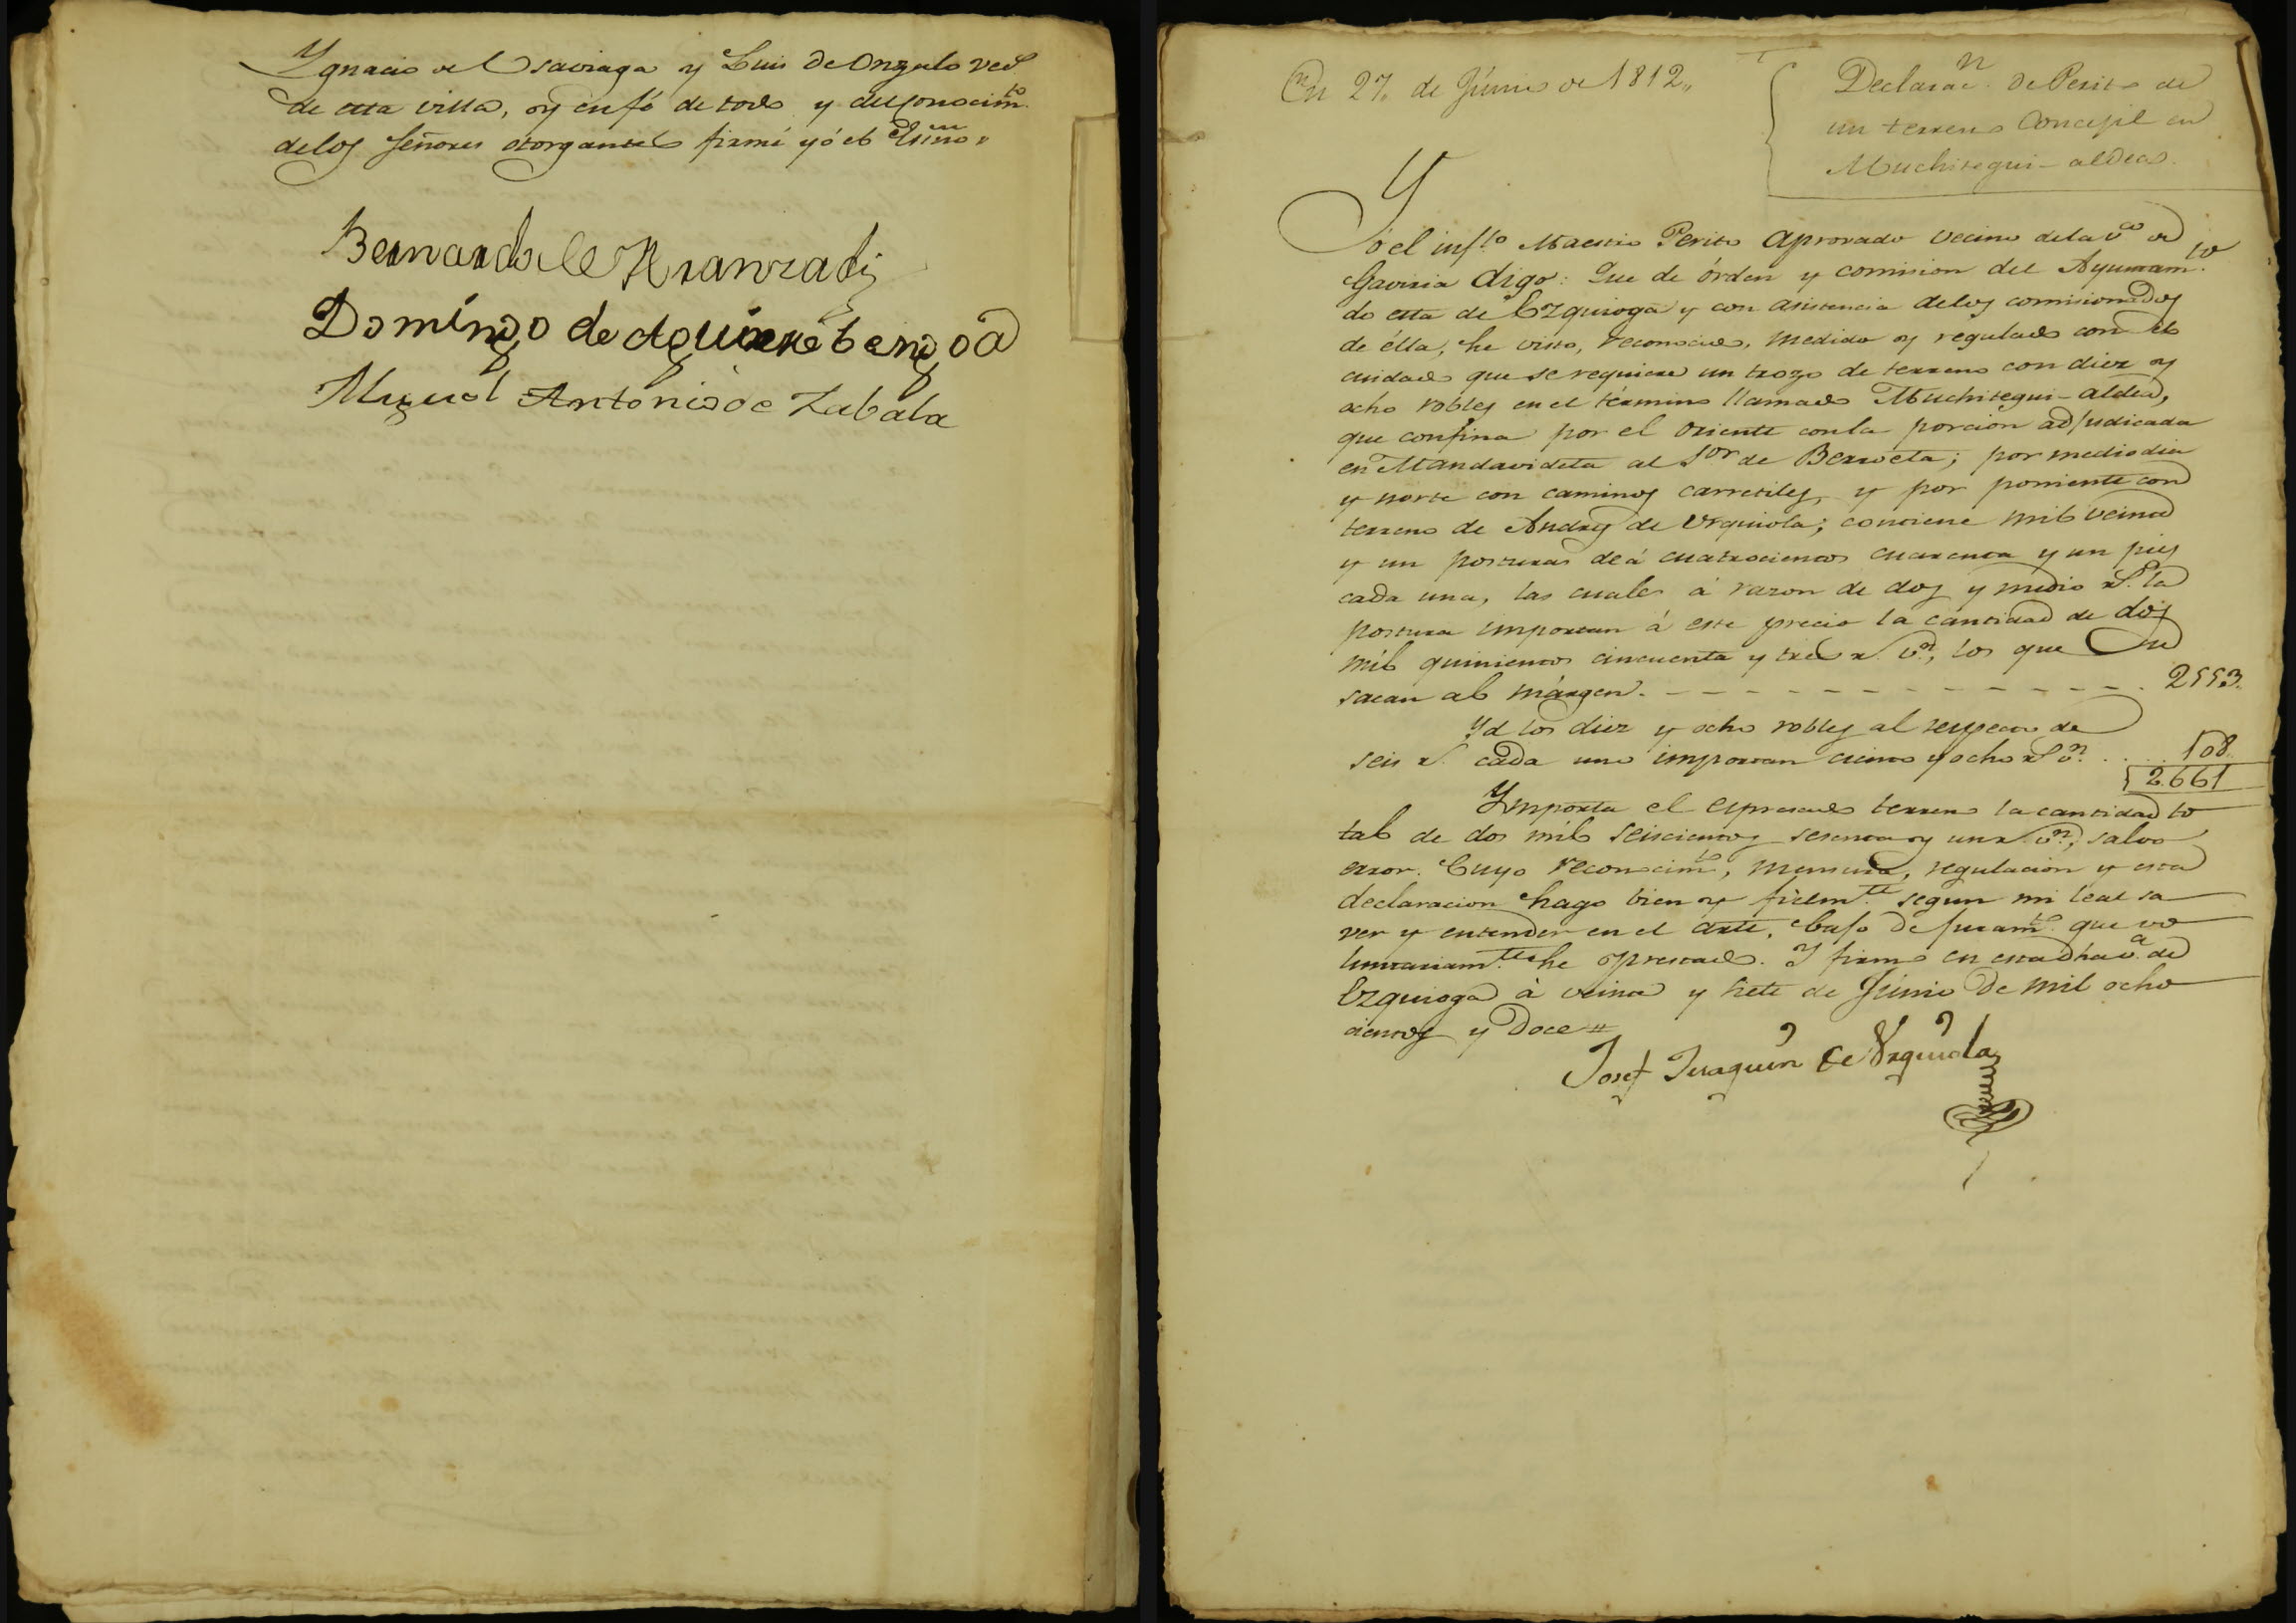 Ygnacio de Usaviaga y Luis de Onzalo veZ.
de esta villa, y en fé de todo y del conocim.to
delos señores otorgantes firmé yó el Essno.
Bernardo de Aranzadi
Domingo de Aguirrebengoa
Miguel Antonio de Zabala
En 27,, de Júnio de 1812,,
Declarac.n de Perito de
un terreno Concejil en
Muchitegui-aldea.
Yó el inf.to Maestro Perito aprovado vecino dela v.a de
Gaviria digo: Que de órden y comision del Ayuntam.to
de esta de Ezquioga y con asistencia delos comisionados
de élla, he visto, reconocido, medido y regulado con el
cuidado que se requiere un trozo de terreno con diez y
ocho robles en el término llamado Muchitegui-aldea,
que confina por el Oriente conla porcion adjudicada
en Mandavideta al S.or de Berroeta; por mediodia
y norte con caminos carretiles, y por poniente con
terreno de Andres de Urquiola; contiene mil veinte
y un posturas de á cuatrocientos cuarenta y un pies
cada una, las cuales á razon de dos y medio r.s la
postura importan á este precio la cantidad de dos
mil quinientos cincuenta y tres r.s v.n, los que se
sacan al márgen. - - - - - - - - - - - - - - 2553.
Yd los diez y ocho robles al respecto de
seis r.s cada uno importan ciento y ocho r.s v.n . . . . 108.
2.661
Ymporta el espresado terreno la cantidad to
tal de dos mil seiscientos sesenta y un r.s v.n, salvo
error. Cuyo reconocim.to, mensura, regulacion y esta
declaracion hago bien y fielm.te segun mi leal sa
ver y entender en el arte, bajo de juram.to que vo
luntariam.te he prestado. Y firmo en esta dha v.a de
Ezquioga à veinte y siete de Júnio de mil ocho
cientos y doce =
Josef Juaquin de Urquiola